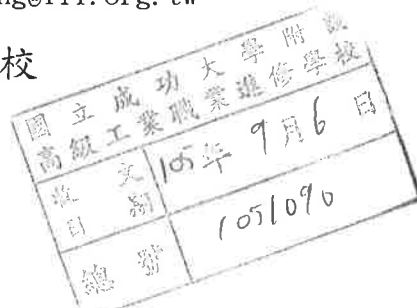 ng@frf.org.tw
校
國立成功大學附設
高級工業職業進修學校
收文日期
105年9月6日
總號
1051090